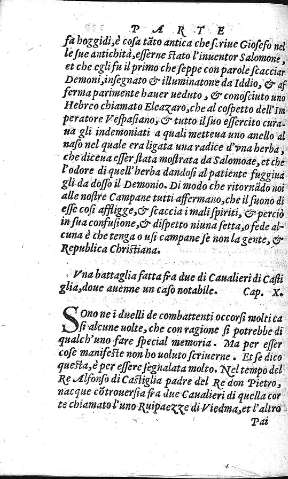 PARTE
fa hoggidì, è cosa tāto antica che scriue Gioseso nel
le sue antichità, esserne stato l'inuentor Salomone,
et che egli fu il primo che seppe con parole scacciar
Demoni, insegnato & illuminatone da Iddio, & af
ferma parimente hauer ueduto, & conosciuto uno
Hebreo chiamato Eleazaro, che al cospetto dell'Im
peratore Vespasiano, & tutto il suo essercito cura-
ua gli indemoniati a quali metteua uno anello al
naso nel quale era ligata una radice d'vna herba,
che diceua esser stata mostrata da Salomone, et che
l'odore di quell'herba dandosi al patiente fuggiua
gli da dosso il Demonio. Di modo che ritornādo noi
alle nostre Campane tutti affermano, che il suono di
esse cosi affligge, & scaccia i mali spiriti, & perciò
in sua confusione, & dispetto niuna setta, o fede al-
cuna è che tenga o usi campane se non la gente, &
Republica Christiana.
Vna battaglia fatta fra due di Caualieri di Casti
glia, doue auenne un caso notabile. Cap. X.
Sono ne i duelli de combattenti occorsi molti ca
si alcune uolte, che con ragione si potrebbe di
qualch'uno fare special memoria. Ma per esser
cose manifeste non ho uoluto scriuerne. Et se dico
questa, è per essere segnalata molto. Nel tempo del
Re Alfonso di Castiglia padre del Re don Pietro,
nacque cōtrouersia fra due Caualieri di quella cor
te chiamato l'uno Ruipaezze di Viedma, et l'altro
Pai